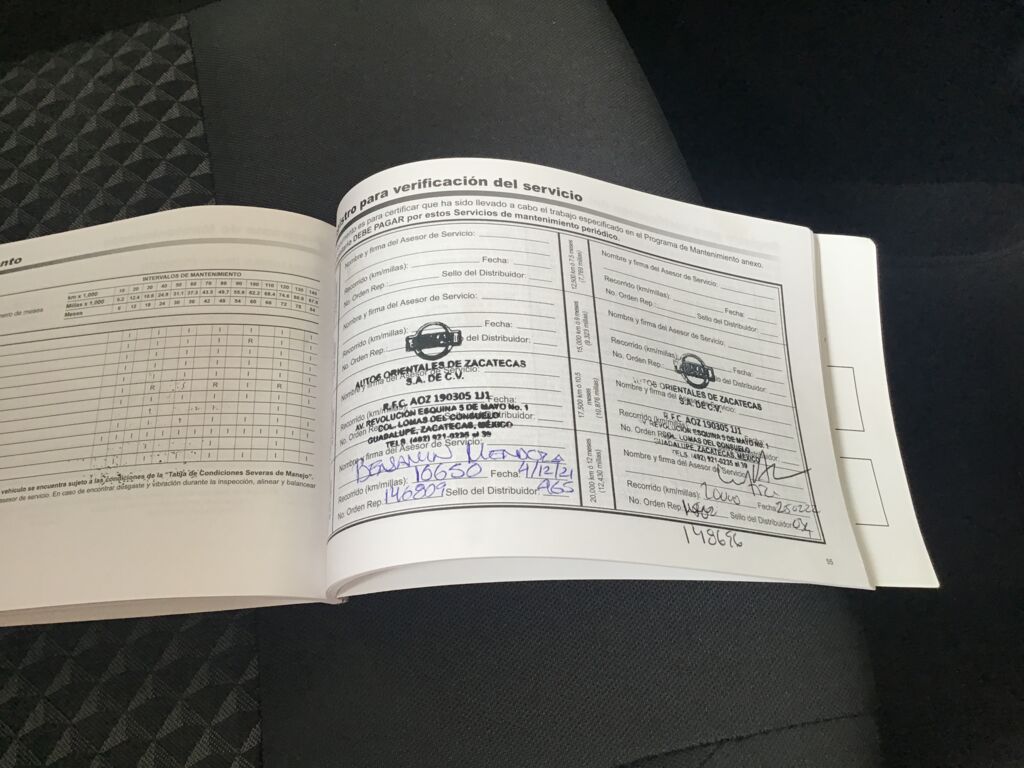 ento
INTERVALOS DE MANTENIMIENTO
km x 1,000 10 20 30 40 50 60 70 80 90 100 110 120 130 140
Millas x 1,000
Meses 6 12 18 24 30 36 42 48 54 60 66 72 78 84
mero de meses
vehículo se encuentra sujeto a las condiciones de la "Tabla de Condiciones Severas de Manejo".
asesor de servicio. En caso de encontrar desgaste y vibración durante la inspección, alinear y balancear
stro para verificación del servicio
ento es para certificar que ha sido llevado a cabo el trabajo especificado en el Programa de Mantenimiento anexo.
DEBE PAGAR por estos Servicios de mantenimiento periódico.
Nombre y firma del Asesor de Servicio:
Recorrido (km/millas): Fecha:
No. Orden Rep.: Sello del Distribuidor:
12,500 km ó 7.5 meses
(7,769 millas)
Nombre y firma del Asesor de Servicio:
Recorrido (km/millas): Fecha:
No. Orden Rep. do del Distribuidor:
15,000 km ó 9 meses
(9,323 millas)
NISSAN
AUTOS ORIENTALES DE ZACATECAS
S.A. DE C.V.
R.F.C. AOZ 190305 1J1
AV. REVOLUCIÓN ESQUINA 5 DE MAYO No. 1
COL. LOMAS DEL CONSUELO
GUADALUPE, ZACATECAS, MÉXICO
TELS. (492) 921-0235 al 39
17,500 km ó 10.5
meses
(10,876 millas)
Nombre y firma del Asesor de Servicio:
BENJAMIN MENDOZA
Recorrido (km/millas): 10650 Fecha: 4/12/21
No. Orden Rep.: 146809 Sello del Distribuidor: AGS
20,000 km ó 12 meses
(12,430 millas)
Nombre y firma del Asesor de Servicio:
Recorrido (km/millas): Fecha:
No. Orden Rep.: Sello del Distribuidor:
Nombre y firma del Asesor de Servicio:
Recorrido (km/millas): Fecha:
No. Orden Rep. del Distribuidor:
NISSAN
AUTOS ORIENTALES DE ZACATECAS
S.A. DE C.V.
R.F.C. AOZ 190305 1J1
AV. REVOLUCIÓN ESQUINA 5 DE MAYO No. 1
COL. LOMAS DEL CONSUELO
GUADALUPE, ZACATECAS, MÉXICO
TELS. (492) 921-0235 al 39
Nombre y firma del Asesor de Servicio:
Recorrido (km/millas): 20000 Fecha
No. Orden Rep.: Sello del Distribuidor:
148696
55